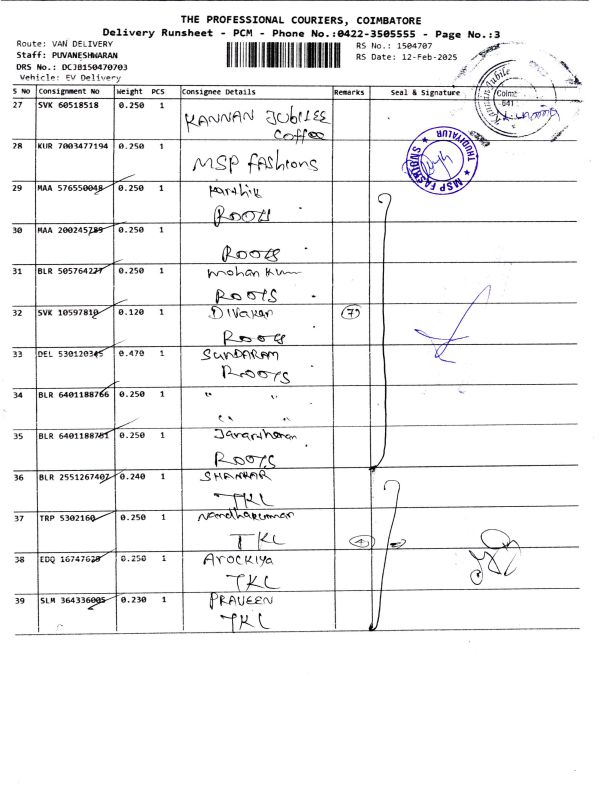 THE PROFESSIONAL COURIERS, COIMBATORE
Delivery Runsheet - PCM - Phone No.:0422-3505555 - Page No.:3
Route: VAN DELIVERY
Staff: PUVANESHWARAN
DRS No.: DCJB150470703
Vehicle: EV Delivery
RS No.: 1504707
RS Date: 12-Feb-2025
S No Consignment No Weight PCS Consignee Details Remarks Seal & Signature
27 SVK 60518518 0.250 1 KANNAN JUBILEE
Coffee
Kannan Jubile
Coimb
641
28 KUR 7003477194 0.250 1 MSP fashions
THUDIYALUR
★ MSP FASHIONS ★
29 MAA 576550048 0.250 1 Karthik
ROOTS
30 MAA 200245789 0.250 1
ROOTS
31 BLR 505764277 0.250 1 Mohan Kum
ROOTS
32 SVK 10597810 0.120 1 Divakar (7)
ROOTS
33 DEL 530120345 0.470 1 SUNDARAM
ROOTS
34 BLR 6401188766 0.250 1 " "
" "
35 BLR 6401188781 0.250 1
ROOTS
36 BLR 2551267407 0.240 1 SHANKAR
TKL
37 TRP 5302160 0.250 1 Nandhakumar
TKL (4)
38 EDQ 16747629 0.250 1 Arockiya
TKL
39 SLM 364336005 0.230 1 PRAVEEN
TKL